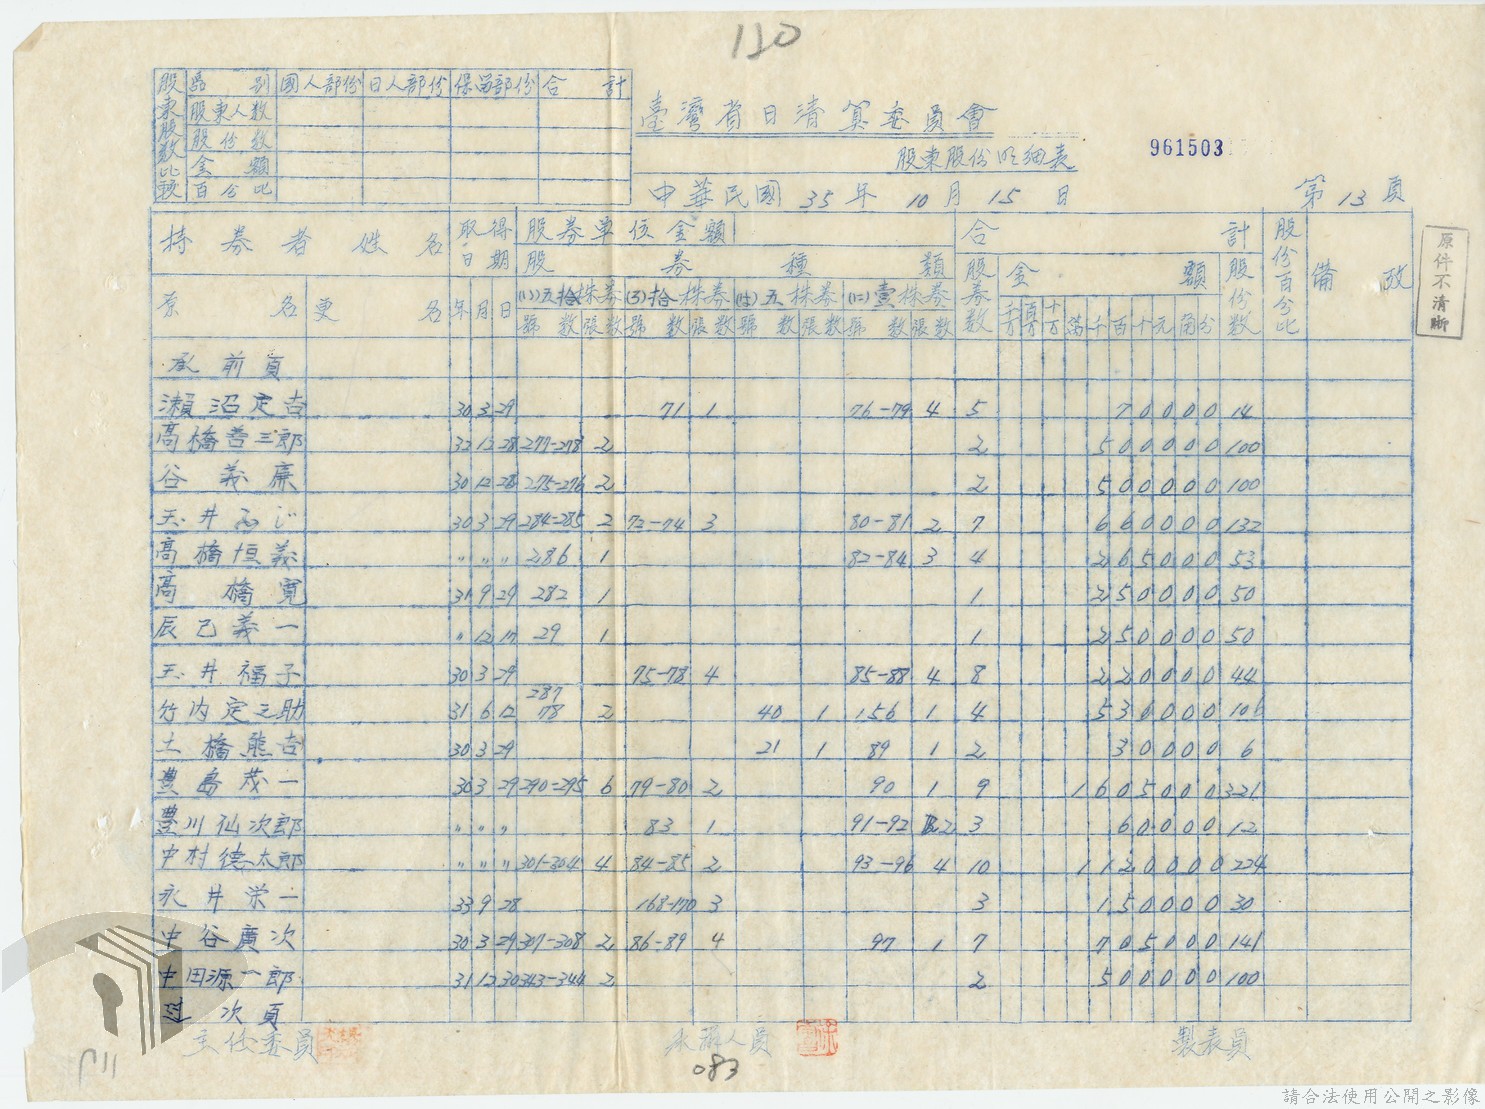 120
股東股數比較 區別 國人部份 日人部份 保留部份 合計
股東人數
股份數
金額
百分比
臺灣省日清算委員會
股東股份明細表
961503
中華民國 35 年 10 月 15 日
第 13 頁
原件不清晰
持券者姓名 取得日期 股券單位金額 合計 股份百分比 備攷
股券種類 股券數 金額 股份數
原名 更名 年 月 日 (い)五拾株券 (ろ)拾株券 (は)五株券 (に)壹株券
號數 張數 號數 張數 號數 張數 號數 張數 千万 百万 十万 萬 千 百 十 元 角 分
承前頁
瀬沼定吉 30 3 29 71 1 76-79 4 5 70000 14
高橋善三郎 32 12 28 277-278 2 2 500000 100
谷義廉 30 12 28 275-276 2 2 500000 100
玉井 30 3 29 284-285 2 72-74 3 80-81 2 7 660000 132
高橋恒義 〃 〃 〃 286 1 82-84 3 4 265000 53
高橋寛 31 9 29 282 1 1 250000 50
辰己義一 〃 12 17 29 1 1 250000 50
玉井福子 30 3 29 75-78 4 85-88 4 8 220000 44
竹内定之助 31 6 12 287 78 2 40 1 156 1 4 530000 106
土橋熊吉 30 3 29 21 1 89 1 2 30000 6
豊島茂一 30 3 29 290-295 6 79-80 2 90 1 9 1605000 321
豊川仙次郎 〃 〃 〃 83 1 91-92 2 3 60000 12
中村德太郎 〃 〃 〃 301-304 4 84-85 2 93-96 4 10 1120000 224
永井栄一 33 9 28 168-170 3 3 150000 30
中谷廣次 30 3 29 307-308 2 86-89 4 97 1 7 705000 141
中田源一郎 31 12 30 343-344 2 2 500000 100
過次頁
主任委員 承辦人員 製表員
083
請合法使用公開之影像